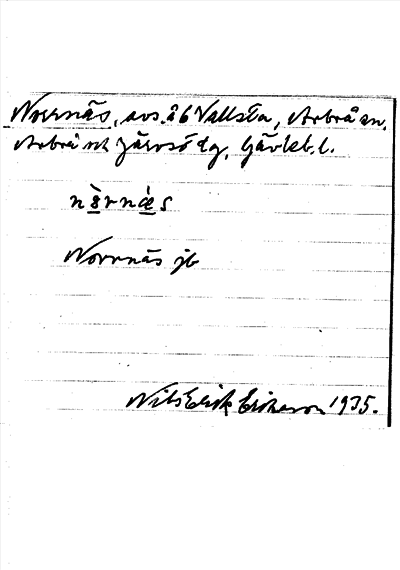 Norrnäs, avs. å 6 Vallsta, Arbrå sn,
Arbrå och Järvsö tg, Gävleb. l.
nòrnǽs
Norrnäs jb
Nils Erik Erikson 1935.